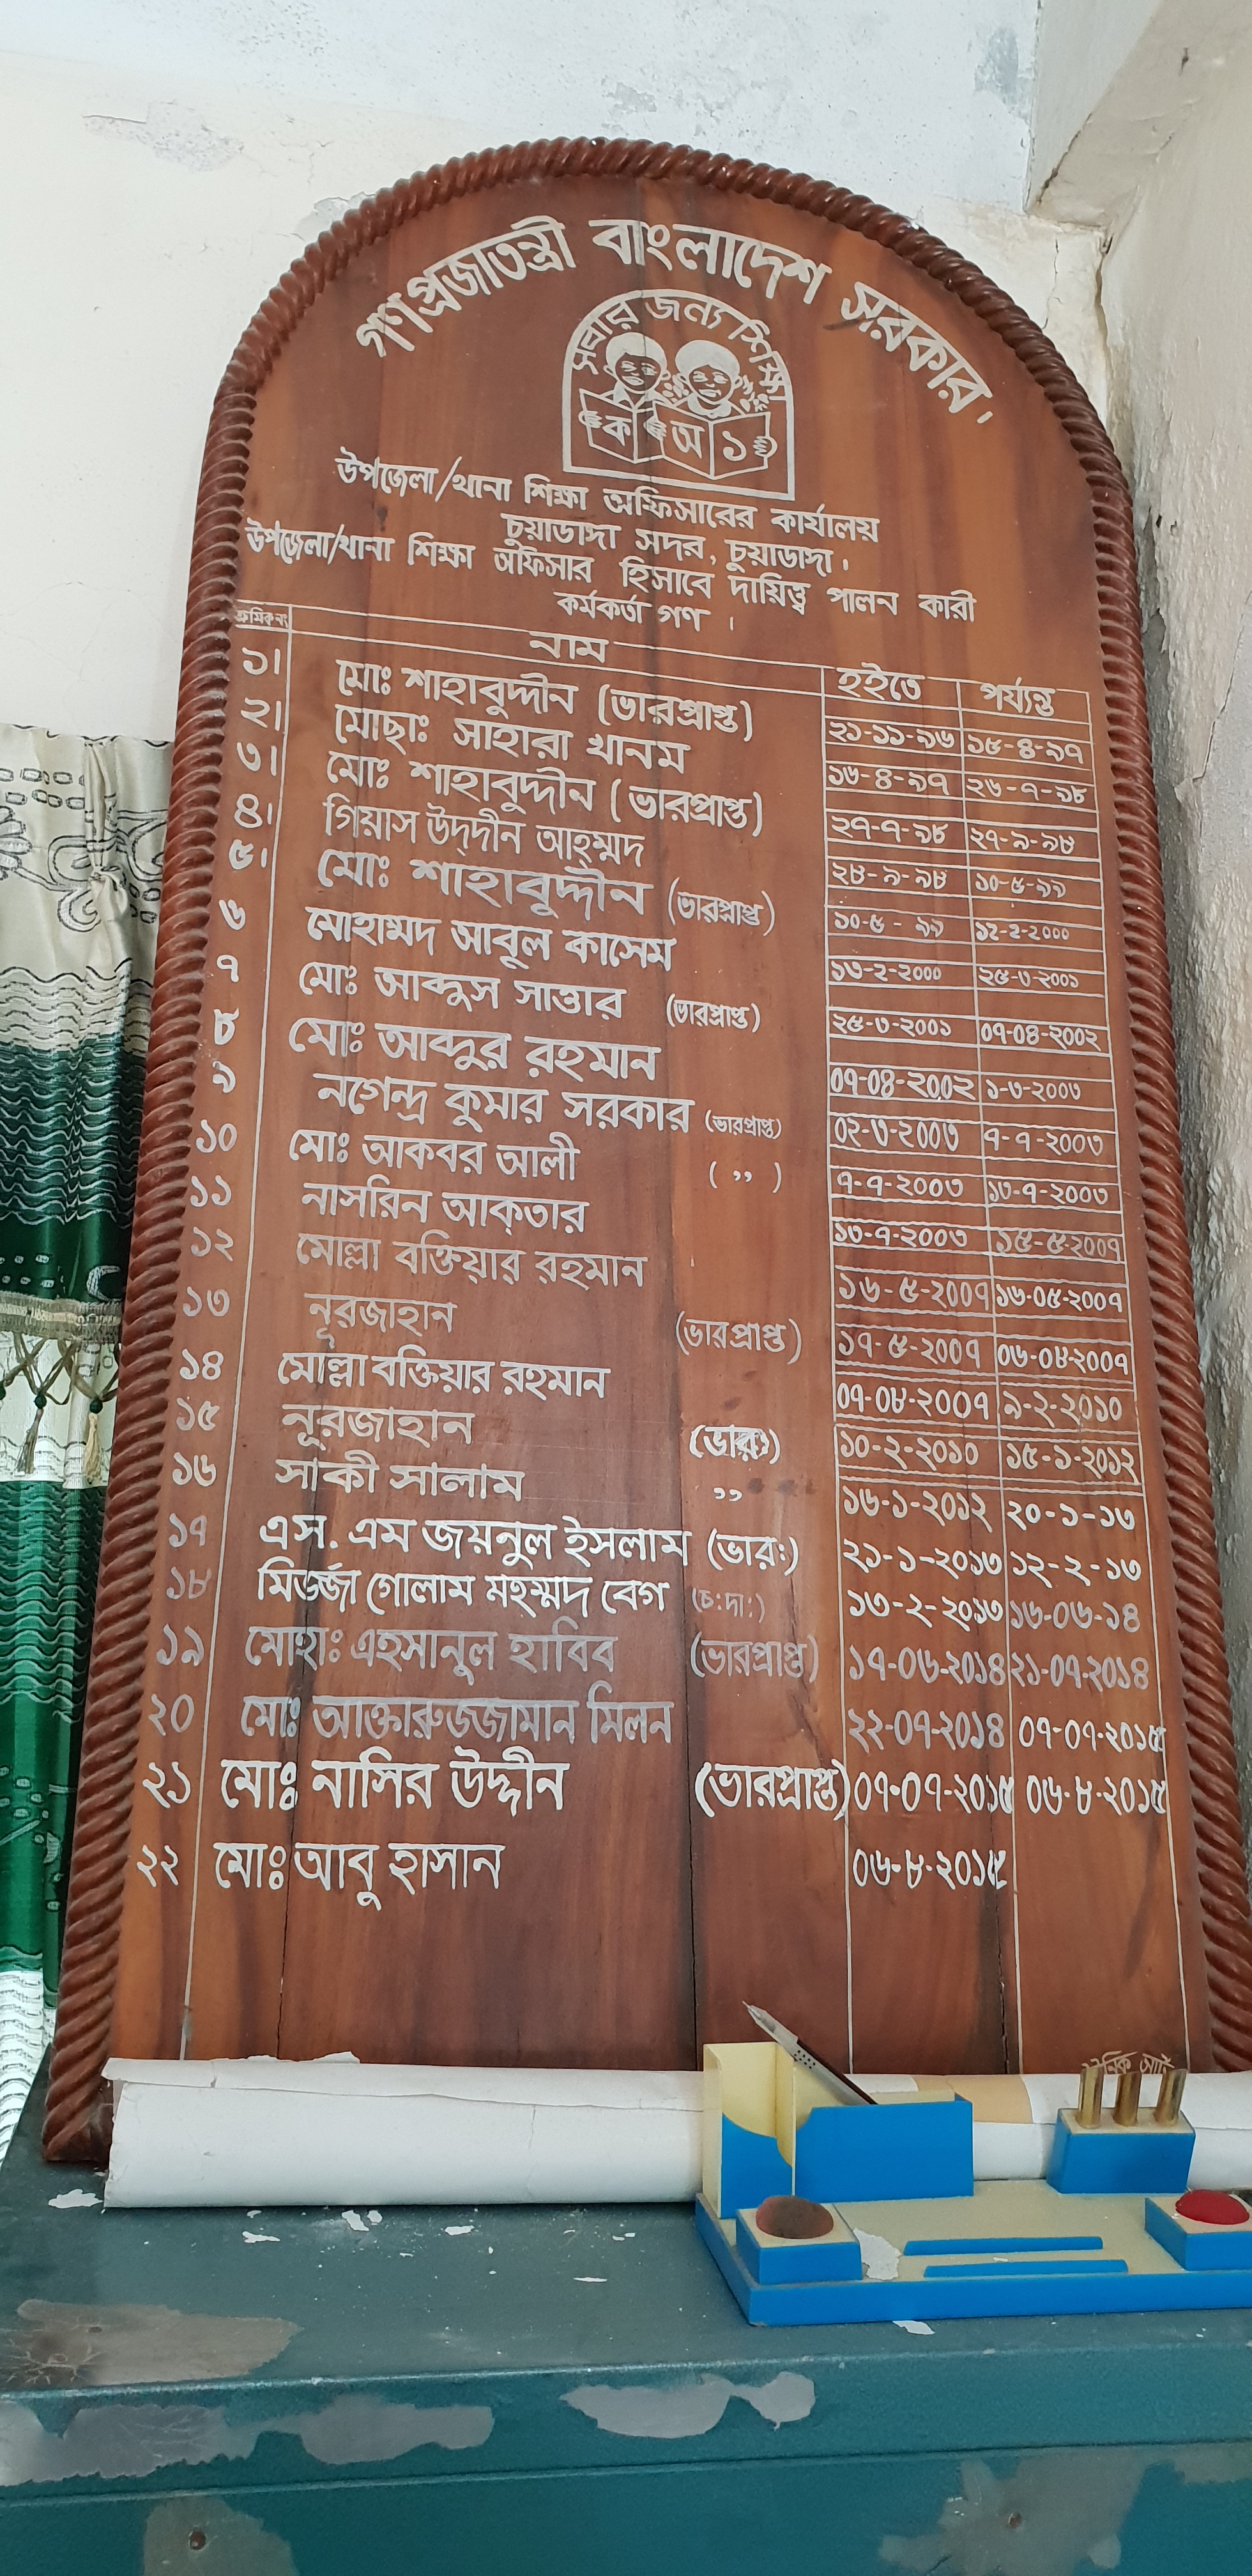 গণপ্রজাতন্ত্রী বাংলাদেশ সরকার।
সবার জন্য শিক্ষা
ক অ ১
উপজেলা/থানা শিক্ষা অফিসারের কার্যালয়
চুয়াডাঙ্গা সদর, চুয়াডাঙ্গা।
উপজেলা/থানা শিক্ষা অফিসার হিসাবে দায়িত্ব পালন কারী
কর্মকর্তা গণ ।
ক্রমিক নং নাম হইতে পর্য্যন্ত
১। মোঃ শাহাবুদ্দীন (ভারপ্রাপ্ত) ২১-১১-৯৬ ১৫-৪-৯৭
২। মোছাঃ সাহারা খানম ১৬-৪-৯৭ ২৬-৭-৯৮
৩। মোঃ শাহাবুদ্দীন (ভারপ্রাপ্ত) ২৭-৭-৯৮ ২৭-৯-৯৮
৪। গিয়াস উদ্দীন আহ্ম্মদ ২৮-৯-৯৮ ১০-৫-৯৯
৫। মোঃ শাহাবুদ্দীন (ভারপ্রাপ্ত) ১০-৫-৯৯ ১২-২-২০০০
৬ মোহাম্মদ আবুল কাসেম ১৩-২-২০০০ ২৫-৩-২০০১
৭ মোঃ আব্দুস সাত্তার (ভারপ্রাপ্ত) ২৫-৩-২০০১ ০৭-০৪-২০০২
৮ মোঃ আব্দুর রহমান ০৭-০৪-২০০২ ১-৩-২০০৩
৯ নগেন্দ্র কুমার সরকার (ভারপ্রাপ্ত) ০২-৩-২০০৩ ৭-৭-২০০৩
১০ মোঃ আকবর আলী ( ,, ) ৭-৭-২০০৩ ১৩-৭-২০০৩
১১ নাসরিন আক্তার ১৩-৭-২০০৩ ১৫-৫-২০০৭
১২ মোল্লা বক্তিয়ার রহমান ১৬-৫-২০০৭ ১৬-০৫-২০০৭
১৩ নূরজাহান (ভারপ্রাপ্ত) ১৭-৫-২০০৭ ০৬-০৮-২০০৭
১৪ মোল্লা বক্তিয়ার রহমান ০৭-০৮-২০০৭ ৯-২-২০১০
১৫ নূরজাহান (ভারঃ) ১০-২-২০১০ ১৫-১-২০১২
১৬ সাকী সালাম ,, ১৬-১-২০১২ ২০-১-১৩
১৭ এস. এম জয়নুল ইসলাম (ভার:) ২১-১-২০১৩ ১২-২-১৩
১৮ মির্জ্জা গোলাম মহম্মদ বেগ (চ:দা:) ১৩-২-২০১৩ ১৬-০৬-১৪
১৯ মোহাঃ এহসানুল হাবিব (ভারপ্রাপ্ত) ১৭-০৬-২০১৪ ২১-০৭-২০১৪
২০ মোঃ আক্তারুজ্জামান মিলন ২২-০৭-২০১৪ ০৭-০৭-২০১৫
২১ মোঃ নাসির উদ্দীন (ভারপ্রাপ্ত) ০৭-০৭-২০১৫ ০৬-৮-২০১৫
২২ মোঃ আবু হাসান ০৬-৮-২০১৫